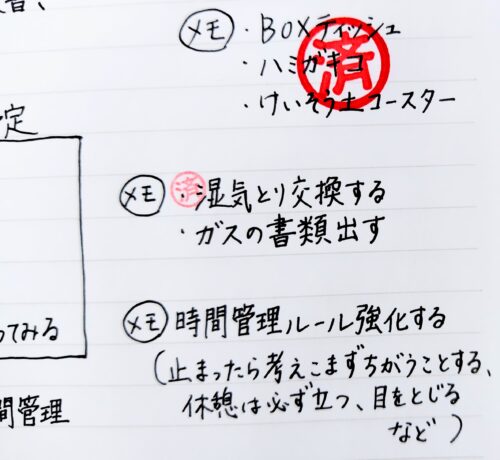 メモ ・BOXティッシュ
・ハミガキコ
済
・けいそう土コースター
定
メモ 済 ・湿気とり交換する
・ガスの書類出す
ってみる
メモ 時間管理ルール強化する
(止まったら考えこまずちがうことする、
休憩は必ず立つ、目をとじる
など)
間管理